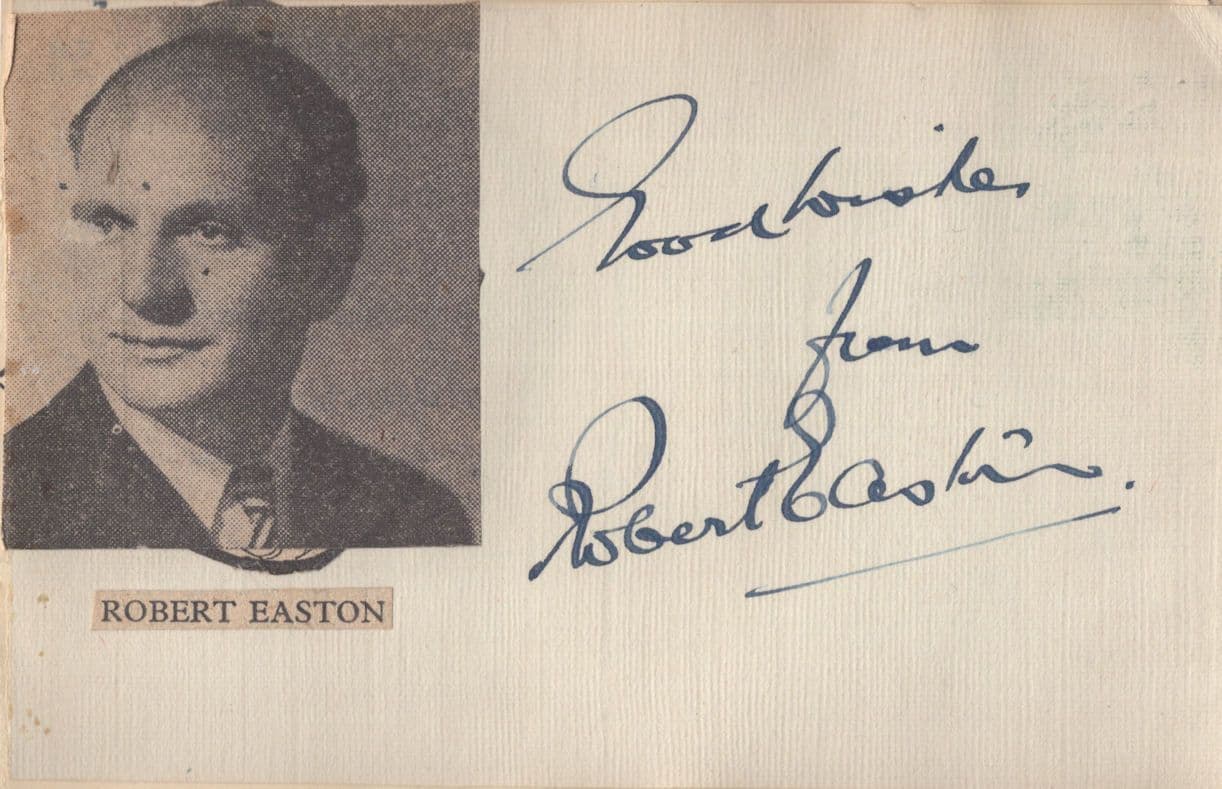 Good Wishes
from
Robert Easton.
ROBERT EASTON